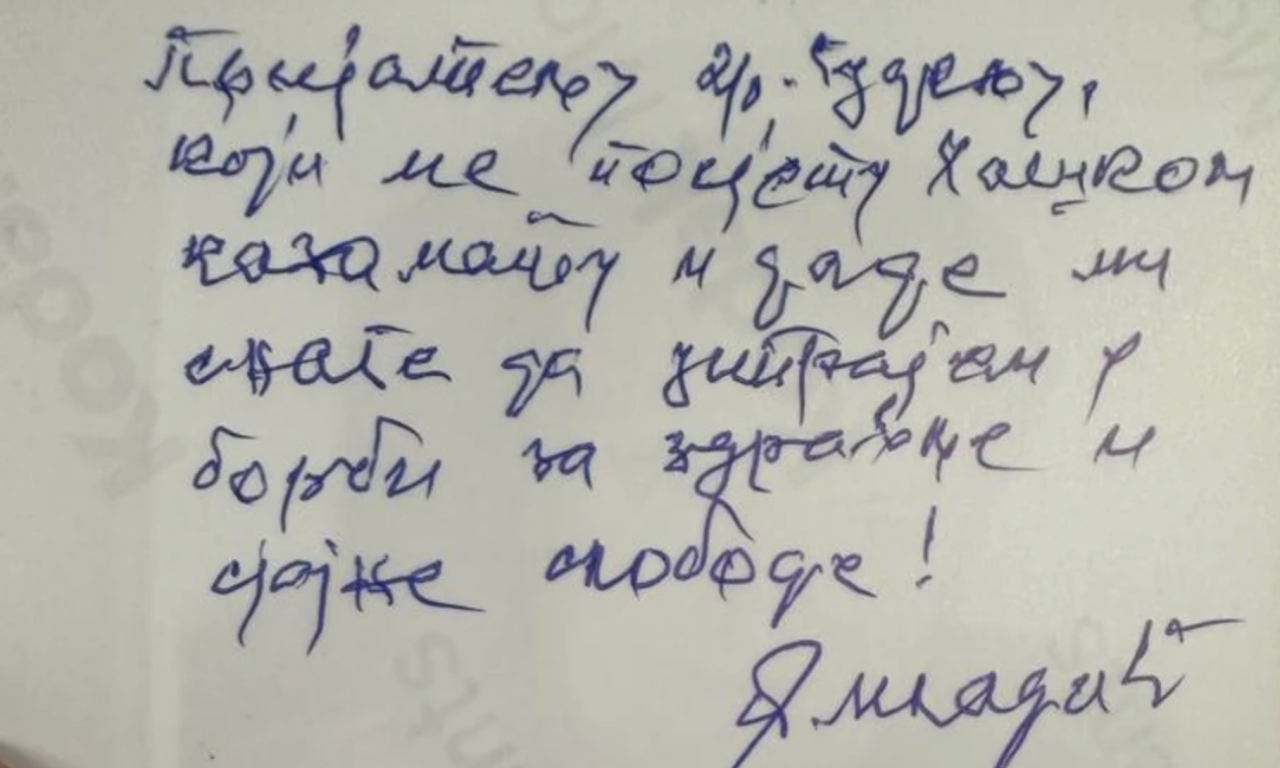 Пријатељу др. Гудељу,
који ме посјети у Хашком
казамату и даде ми
снаге да истрајем у
борби за здравље и
сјајне слободе!
Р. Младић